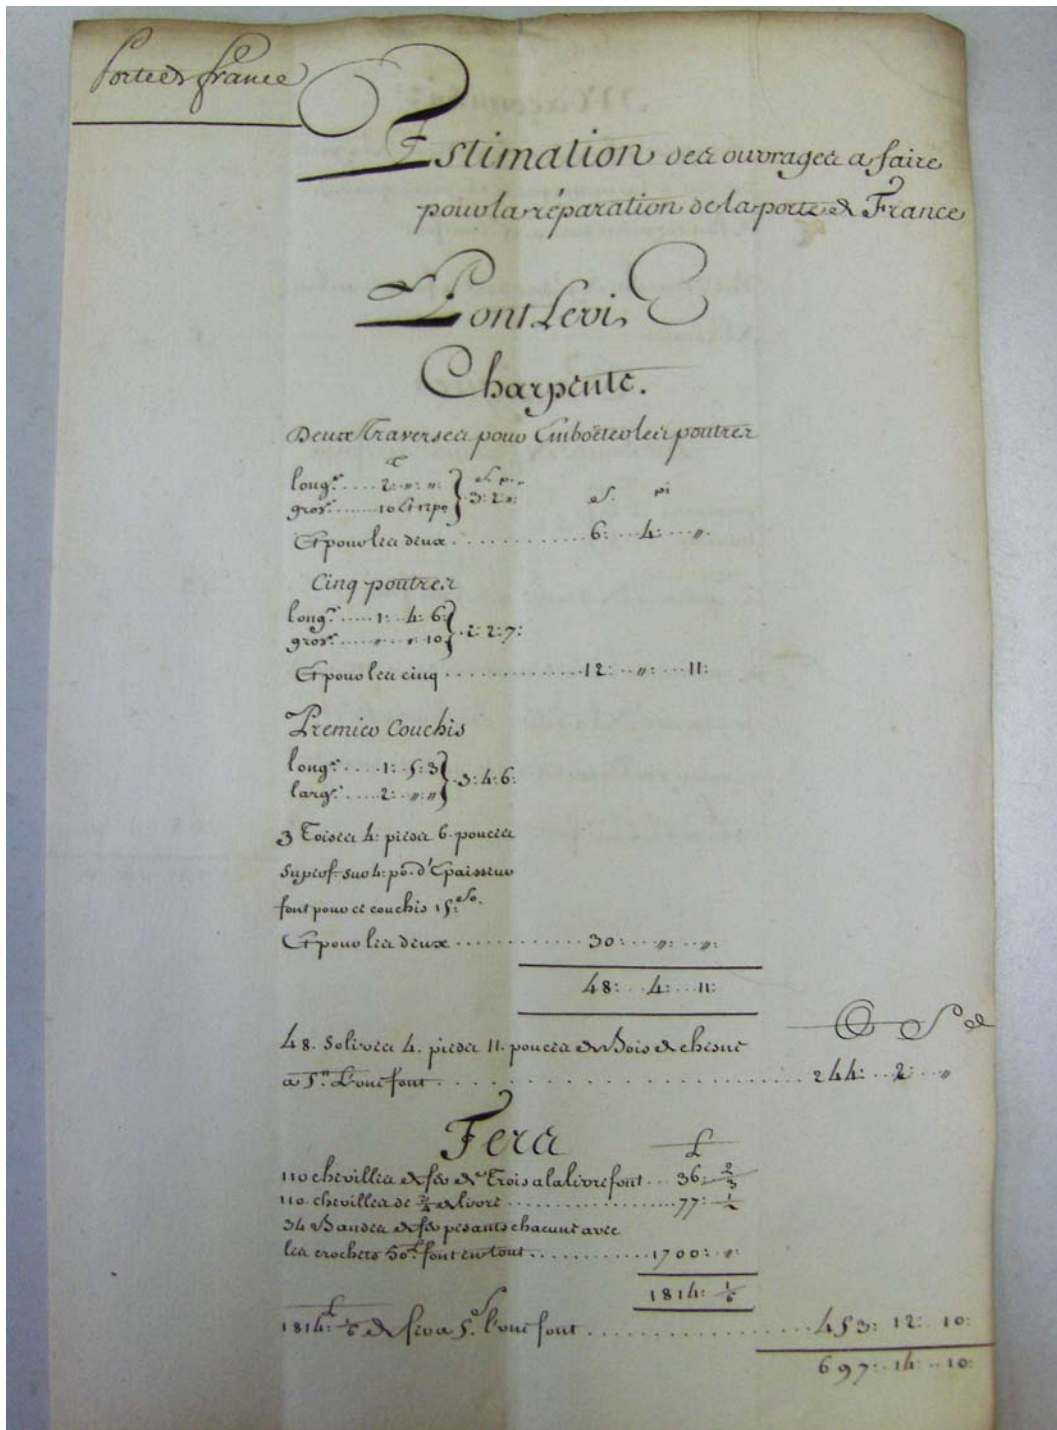 Porte de france
Estimation des ouvrages a faire
pour la réparation de la porte de France
Pont Levis
Charpente.
Deux Traverses pour Emboëter les poutres
T
long.r .... 2: ,,: ,,: S. pi. ,,
gros.r ...... 10 et 12 po } 3: 2: ,,: S. pi
Et pour les deux ........... 6: ... 4: ... ,,
Cinq poutres
long.r ..... 1: .. 4: 6:
gros.r .... ,, .. ,,: 10 } 2: 2: 7:
Et pour les cinq ............. 12: .. ,,: ... 11:
Premier Couchis
long.r .... 1: . 5: 3
larg.r .... 2: .. ,,: ,, } 3: 4: 6:
3 Toises 4: pieds 6. pouces
superf. sur 4: po. d'Epaisseur
font pour ce couchis 15: So.
Et pour les deux ............ 30: ... ,,: .. ,,:
48: .. 4: ... 11:
48. Solives 4. pieds 11. pouces de Bois de chesne
a 5.tt L'une font ........................ 244: .. 2: .. ,,
Fers
L
110 chevilles de fer de Trois a la livre font ... 36: 2/3
110. chevilles de 3/4 de livre .................. 77: 1/2
34 Bandes de fer pesants chacune avec
les crochets 50.L font en tout ............ 1700: ,,:
1814: 1/6
1814:L 1/6 de fer a 5.s l'une font ............... 453: 12: 10:
697: 14: 10: